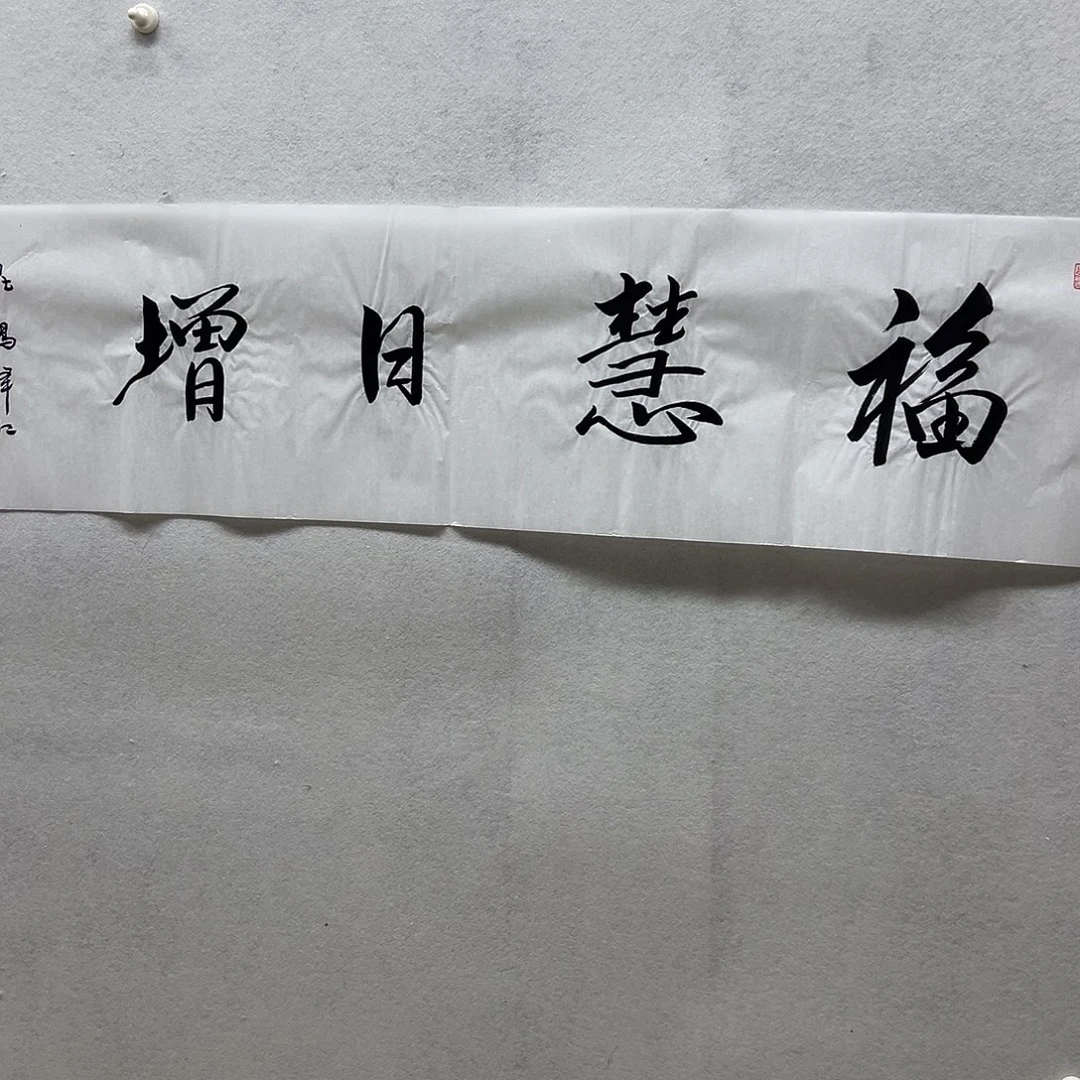 福慧日增